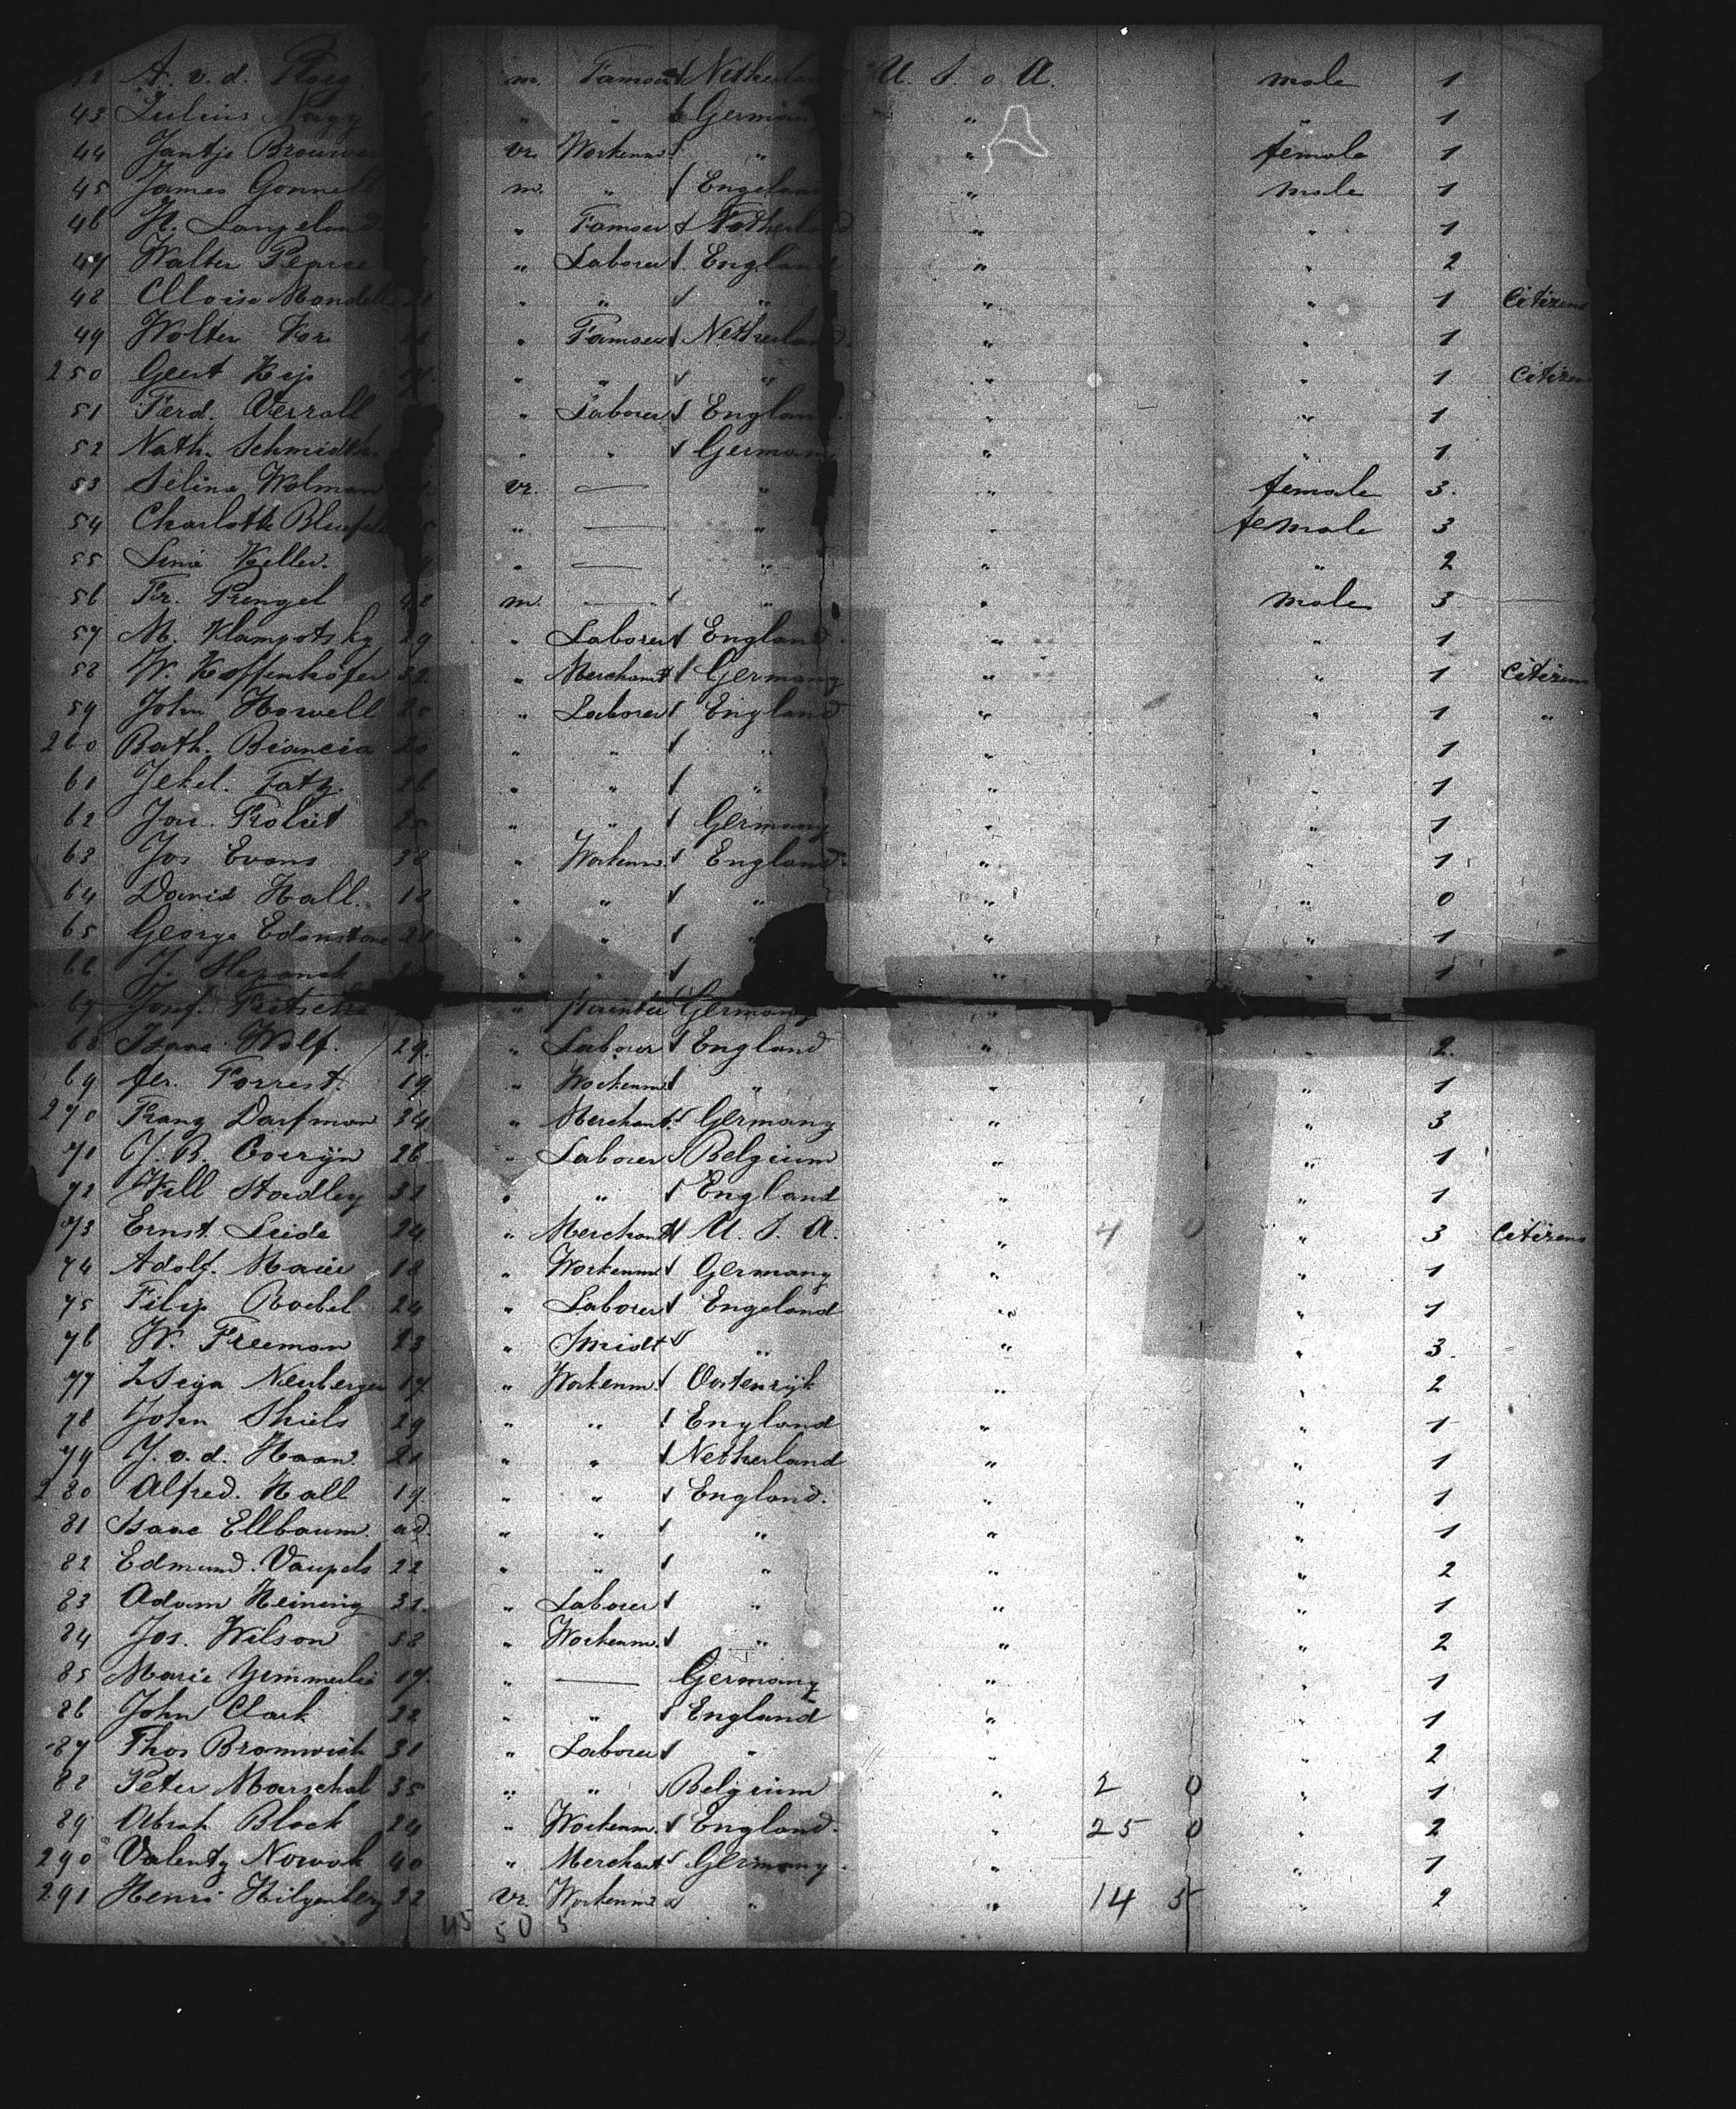 42 A. v. d. Ploeg m. Famoer Netherlan U. S. o A. male 1
43 Julius Nagy " " German " " 1
44 Jantje Brouwer vr. Workenm. " " female 1
45 James Gonnell m. " Engeland " male 1
46 H. Langeland " Famoer " " 1
47 Walter Pearce " Laborer England " " 2
48 Aloise Mandell " " " " " 1 Citizens
49 Wolter Vos " Famoer Netherland " " 1
250 Geert Kip " " " " " 1 Citizen
51 Ferd. Verrall " Laborer England " " 1
52 Nath. Schmidth " " Germany " " 1
53 Selina Wolman vr. — " " female 3.
54 Charlotte " — " " female 3
55 Keller. " — " " " 2
56 Fr. Prengel 42 m. — " " male 3
57 M. Klampotsky 29 " Laborer England " " 1
58 W. Koffenhofer 32 " Merchant Germany " " 1 Citizens
59 John Howell 25 " Laborer England " " 1 "
260 Bath. Biancia 20 " " " " " 1
61 Jekel. Fatz. 26 " " " " " 1
62 25 " " Germany " " 1
63 Jos Evans 38 " Workenm. England " " 1
64 David Hall. 18 " " " " " 0
65 George Edonstone 21 " " " " " 1
66 J. " " " " 1
67 Fritsche " Germany "
68 Isaac Wolf. 29. " Laborer England " " 2.
69 Forrest. 19 " Workenm " " " 1
270 Franz Darfman 34 " Merchant. Germany " " 3
71 J. B. Gorrijn 26 " Laborer Belgium " " 1
72 Will Stoodley 32 " " England " " 1
73 Ernst Leide 24 " Merchant U. S. A. " 4 0 " 3 Citizens
74 Adolf. Maier 18 " Workenm Germany " " 1
75 Filip Roebel 24 " Laborer Engeland " " 1
76 W. Freeman 23 " Smidt " " " 3.
77 Neuberger 17. " Workenm. Oostenrijk " " 2
78 John Shiels 29 " " England " " 1
79 J. v. d. Haan. 21 " " Netherland " " 1
280 Alfred. Hall 19. " " England. " " 1
81 Isaac Ellbaum. ad. " " " " " 1
82 Edmund. Vaupels 22 " " " " " 2
83 Adam Heining 31. " Laborer " " " 1
84 Jos. Wilson 58 " Workenm. " " " 2
85 Marie Zimmerlie 17. " — Germany " " 1
86 John Clark 22 " " England " " 1
87 Thos Bromwich 31 " Laborer " " " 2
88 Peter Marschal 35 " " Belgium " 2 0 " 1
89 Abrah Block 24 " Workenm. England. " 25 0 " 2
290 Valenty Nowak 40 " Merchant Germany. " " 1
291 Henri Hilgenberg 22 vr. Workenm " " 14 5 " 2
45 50 5